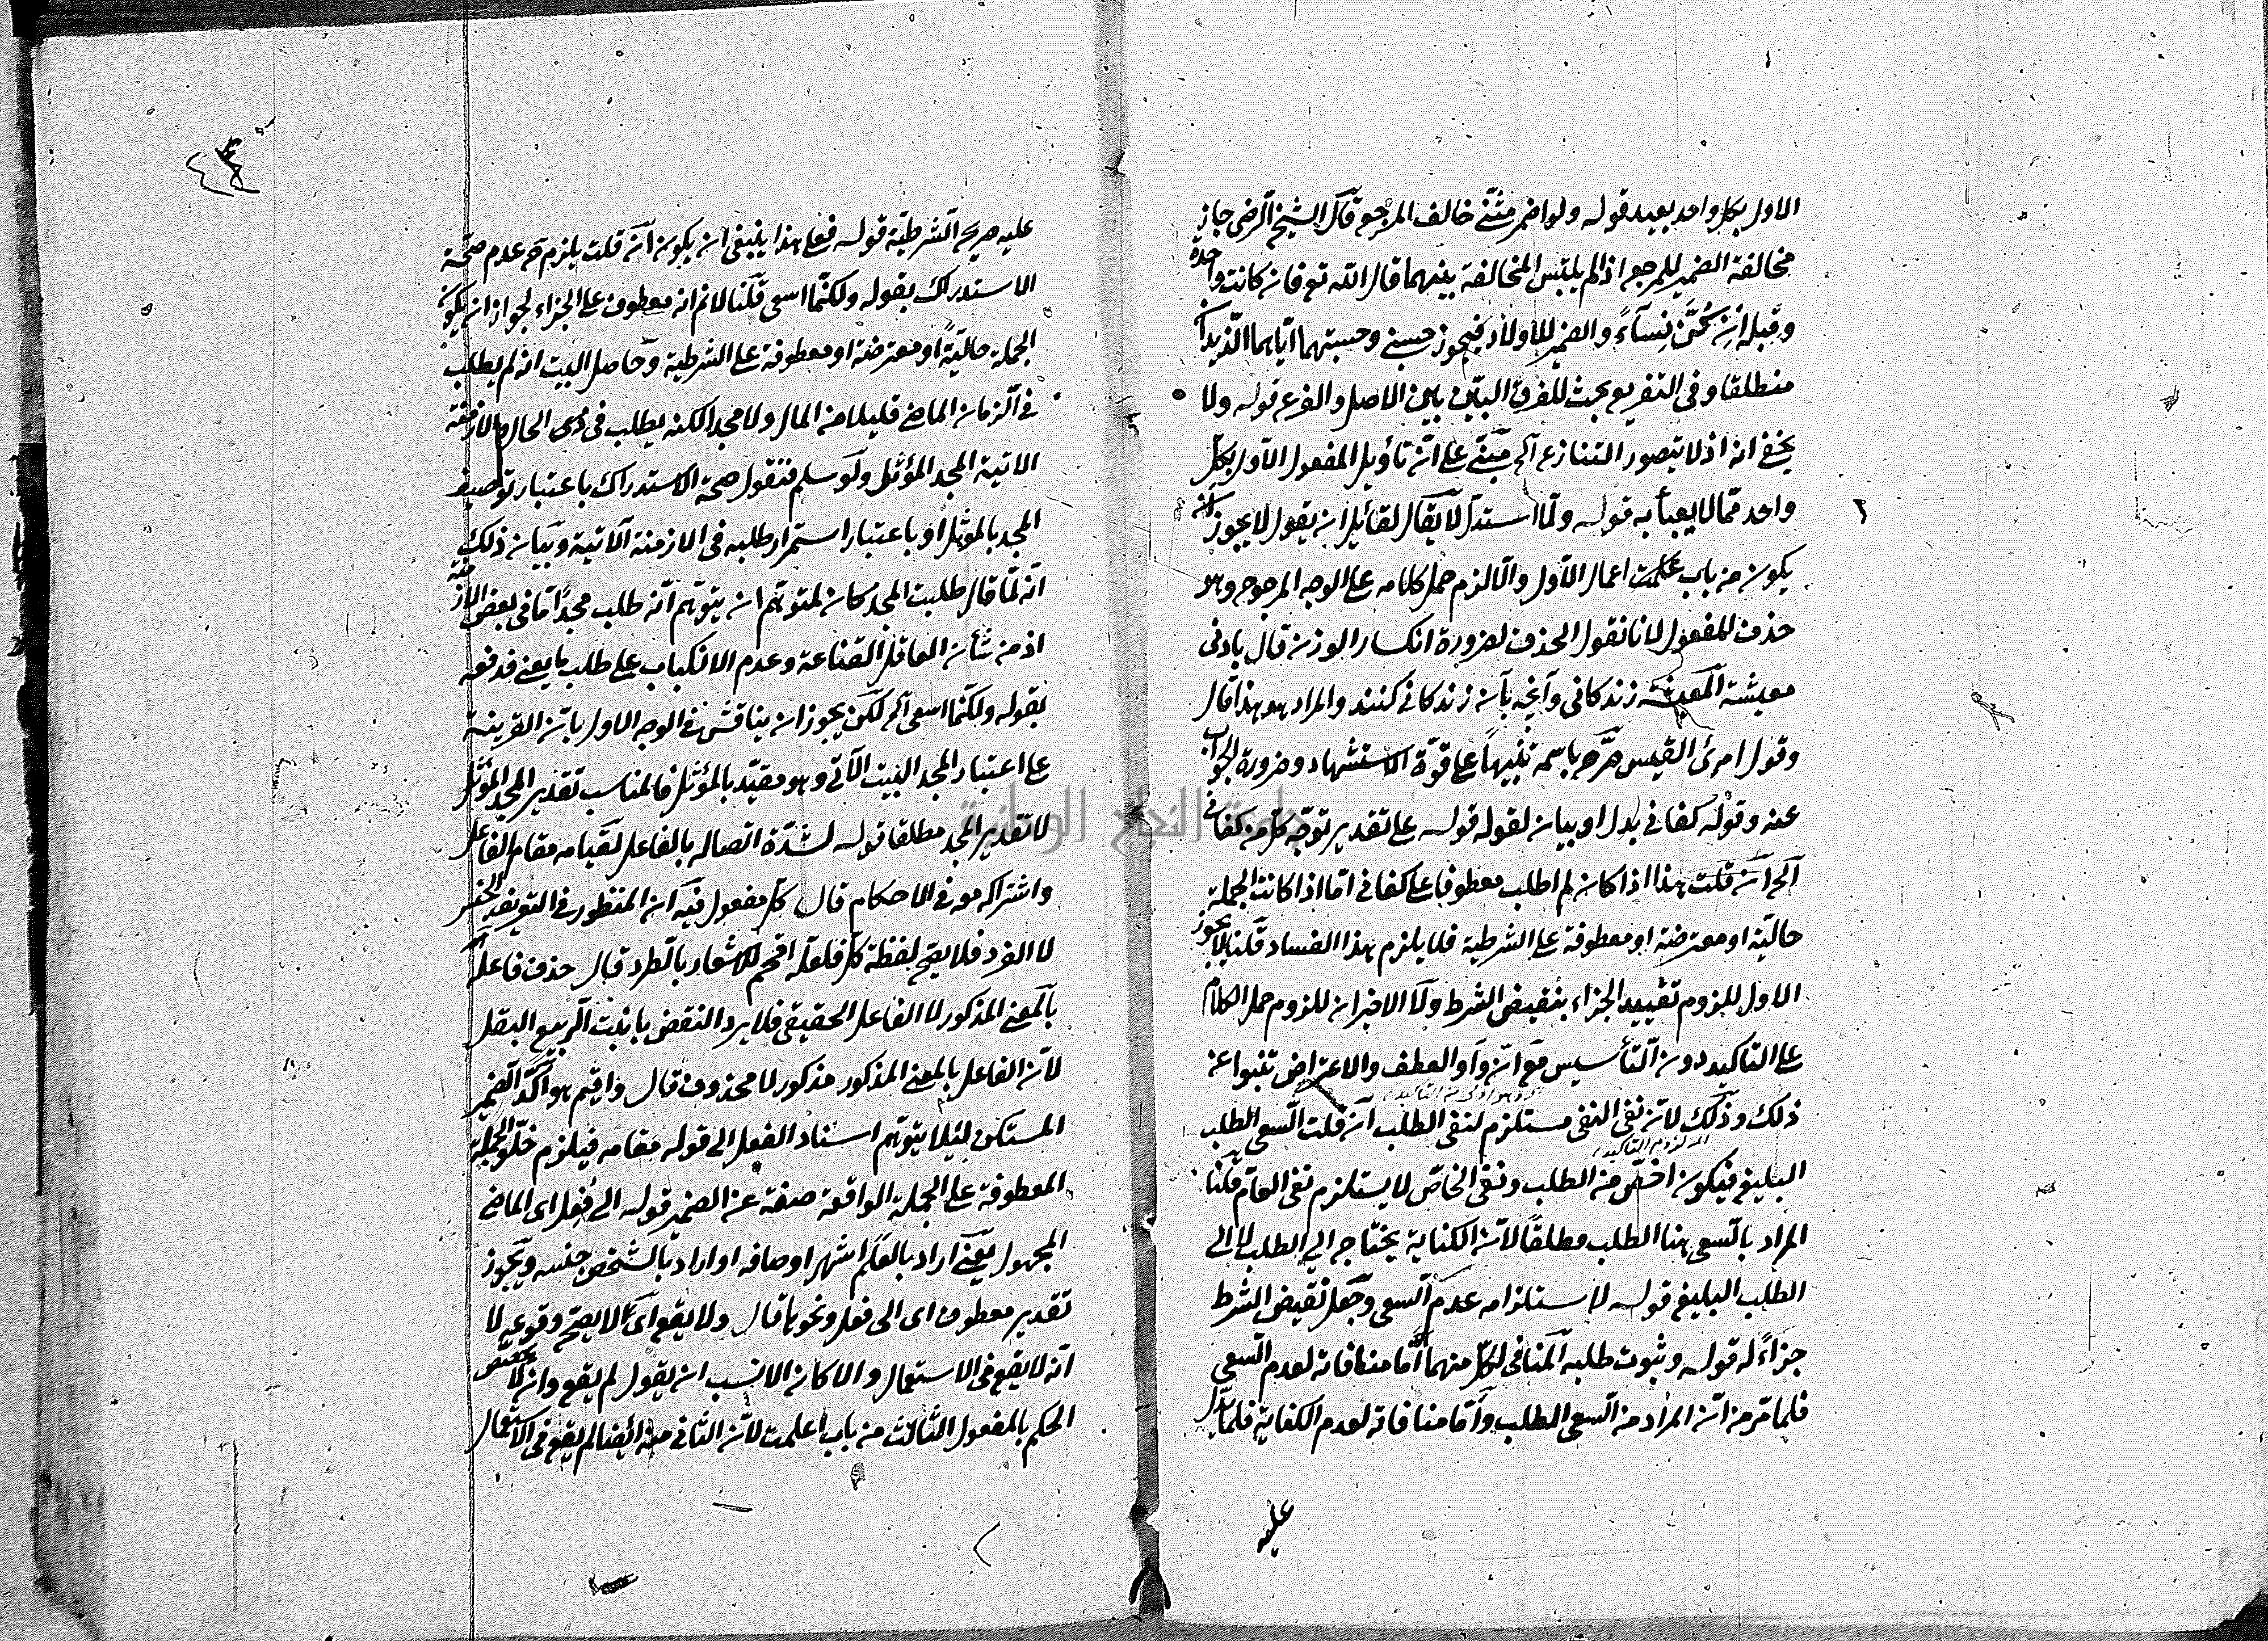 الاول بكل واحد بعيد قوله ولو اضمر مثنى خالف المرجع قال الشيخ الرضى جاز
مخالفة الضمير للمرجع اذا لم يلتبس المخالفة بينهما قال الله تع فان كانت واحدة
وقبله اِنْ كُنَّ نِسآءً والضمير للاولاد فيجوز حسبنى وحسبتهما اياهما الزيدان
منطلقا وفى التفريع بحث للفرق البيّن بين الاصل والفرع قوله ولا
يخفى انه اذ لا يتصور التنازع الخ مبنى على انّ تأويل المفعول الاول بكل
واحد ممّا لا يعبأ به قوله ولما استدل لا يقال لقائل ان يقول لا يجوز ان
يكون من باب علمت اعمال الاول والّا لزم حمل كلامه على الوجه المرجوح وهو
حذف المفعول لانا نقول الحذف لضرورة انكسار الوزن قال بادنى
معيشة المعيشة زندكانى وآنچه بآن زندكانى كنند والمراد هو هذا قال
وقول امرئ القيس صرّح باسمه تنبيهاً على قوّة الاستشهاد وضرورة الجواب
عنه وقوله كفانى بدل او بيان لقوله قوله على تقدير توجّه كل من كفانى
الخ ان قلت هذا اذا كان لم اطلب معطوفا على كفانى امّا اذا كانت الجملة
حاليّة او معترضة او معطوفة على الشرطية فلا يلزم هذا الفساد قلنا لا يجوز
الاول للزوم تقييد الجزاء بنقيض الشرط ولا الاخيران للزوم حمل الكلام
على التاكيد دون التأسيس مع انّ واو العطف والاعتراض تنبوا عن
ذلك وذلك لانّ نفى النفى مستلزم لنفى الطلب ان قلت السعى الطلب
البليغ فيكون اخصّ من الطلب ونفى الخاصّ لا يستلزم نفى العامّ قلنا
المراد بالسعى هنا الطلب مطلقًا لانّ الكفاية يحتاج الى الطلب لا الى
الطلب البليغ قوله لاستلزامه عدم السعى وجعل نقيض الشرط
جزاءً له قوله وثبوت طلبه المنافى لكل منهما امّا منافاته لعدم السعى
فلما مرّ من انّ المراد من السعى الطلب وامّا منافاته لعدم الكفاية فلما يدل
عليه
عليه صريح الشرطيّة قوله فعلى هذا ينبغى ان يكون ان قلت يلزم ح عدم صحّة
الاستدراك بقوله ولكنّما اسعى قلنا لا نم انه معطوف على الجزاء لجواز ان يكون
الجملة حاليّةً او معترضة او معطوفة على الشرطية وحاصل البيت انه لم يطلب
فى الزمان الماضى قليلا من المال ولا مجدا لكنه يطلب فى الحال والازمنة
الاتية المجد المؤثل ولو سلم فنقول صحة الاستدراك باعتبار توصيف
المجد بالمؤثل او باعتبار استمرار طلبه فى الازمنة الاتية وبيان ذلك
انّه لمّا قال طلبت المجد كان لمتوهّم ان يتوهّم انّه طلب مجدًا مّا فى بعض الازمنة
اذ من شأن العاقل القناعة وعدم الانكباب على طلب ما يعنى فدفعه
بقوله ولكنّما اسعى الخ لكن يجوز ان يناقش فى الوجه الاول بانّ القرينة
على اعتبار المجد البيت الآتى وهو مقيّد بالمؤثل فالمناسب تقدير المجد المؤثل
لا تقدير المجد مطلقا قوله لشدّة اتصاله بالفاعل لقيامه مقام الفاعل
واشتراكه معه فى الاحكام قال كل مفعول فيه ان المنظور فى التعريف الجنس
لا الفرد فلا يصح لفظة كل فلعلّه اقحم للاشعار بالطرد قال حذف فاعله
بالمعنى المذكور لا الفاعل الحقيقى فلا يرد النقض بانبت الربيع البقل
لانّ الفاعل بالمعنى المذكور مذكور لا محذوف قال واقيم هو اكّد الضمير
المستكن لئلا يتوهّم اسناد الفعل الى قوله مقامه فيلزم خلوّ الجملة
المعطوفة على الجملة الواقعة صفة عن الضمير قوله الى فُعِل اى الماضى
المجهول يعنى اراد بالعلم اشهر اوصافه او اراد بالشخص جنسه ويجوز
تقدير معطوف اى الى فعل ونحوها قال ولا يقع اى لا يصحّ وقوعه لا
انّه لا يقع فى الاستعمال والا كان الانسب ان يقول لم يقع وان لا يختص
الحكم بالمفعول الثالث من باب اعلمت لانّ الثانى منه ايضا لم يقع فى الاستعمال
جامعة النجاح الوطنية